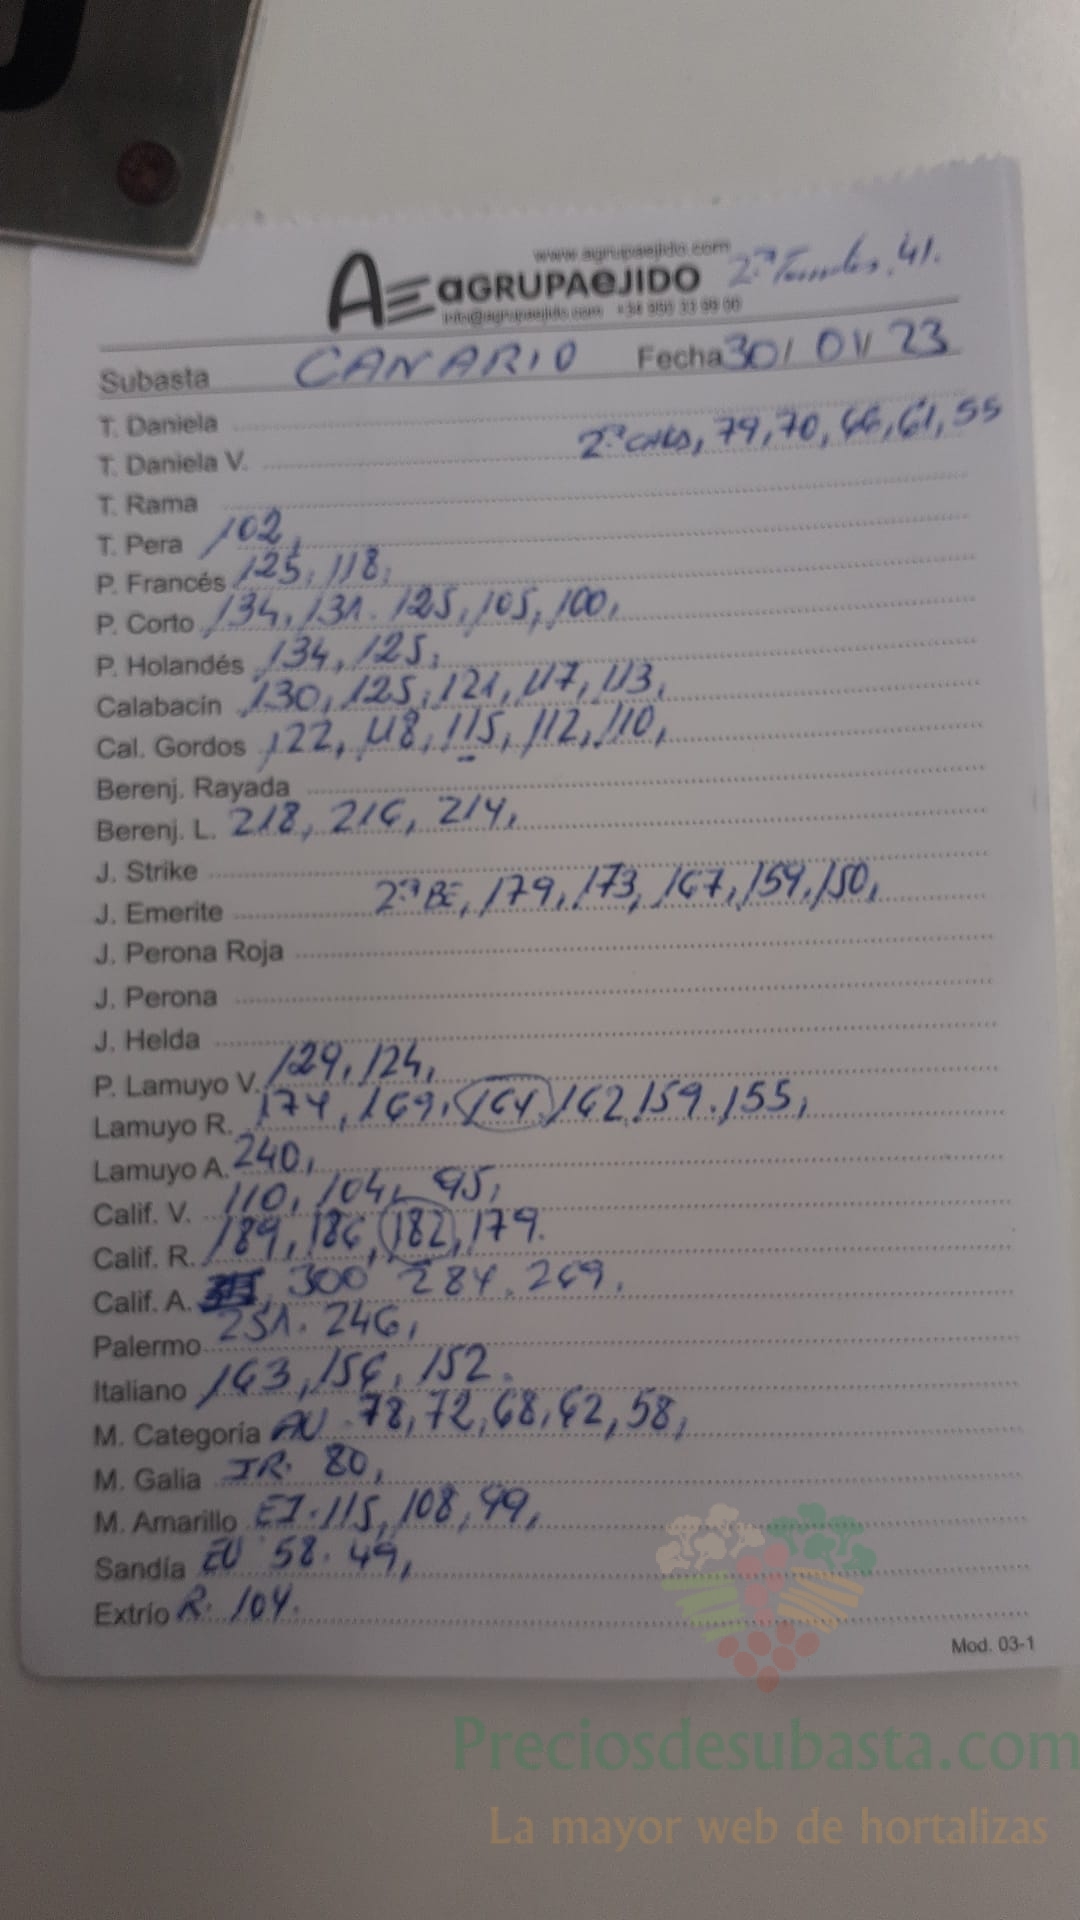 www.agrupaejido.com
AGRUPAEJIDO 2ª Tomates, 41.
info@agrupaejido.com +34 950 33 99 00
Subasta CANARIO Fecha 30/ 01/ 23
T. Daniela
T. Daniela V. 79, 70, 66, 61, 55
T. Rama
T. Pera 102,
P. Francés 125, 118,
P. Corto 134, 131. 125, 105, 100,
P. Holandés 134, 125,
Calabacín 130, 125, 121, 117, 113,
Cal. Gordos 122, 118, 115, 112, 110,
Berenj. Rayada
Berenj. L. 218, 216, 214,
J. Strike
J. Emerite 2ª BE, 179, 173, 167, 159, 150,
J. Perona Roja
J. Perona
J. Helda
P. Lamuyo V. 129, 124,
Lamuyo R. 174, 169, 164, 162, 159. 155,
Lamuyo A. 240,
Calif. V. 110, 104, 95,
Calif. R. 189, 186, 182, 179.
Calif. A. 300 284, 269,
Palermo 251. 246,
Italiano 163, 156, 152.
M. Categoría AU. 78, 72, 68, 62, 58,
M. Galia IR. 80,
M. Amarillo EJ. 115, 108, 99,
Sandía EU 58. 49,
Extrío R. 104.
Mod. 03-1
Preciosdesubasta.com
La mayor web de hortalizas